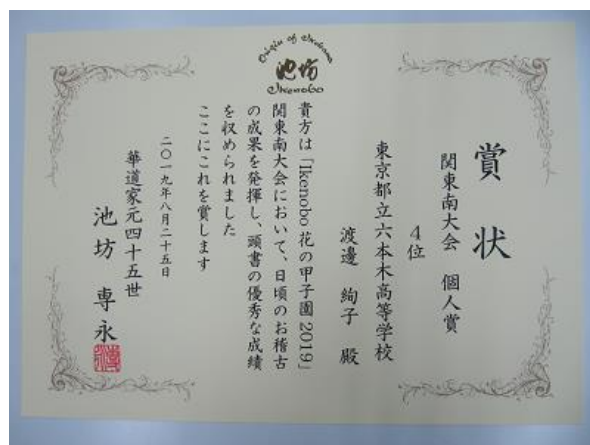 Origin of Ikebana
池坊
Ikenobo
賞状
関東南大会 個人賞
4位
東京都立六本木高等学校
渡邊 絢子 殿
貴方は「Ikenobo 花の甲子園 2019」
関東南大会において、日頃のお稽古
の成果を発揮し、頭書の優秀な成績
を収められました
ここにこれを賞します
二〇一九年八月二十五日
華道家元四十五世
池坊 専永